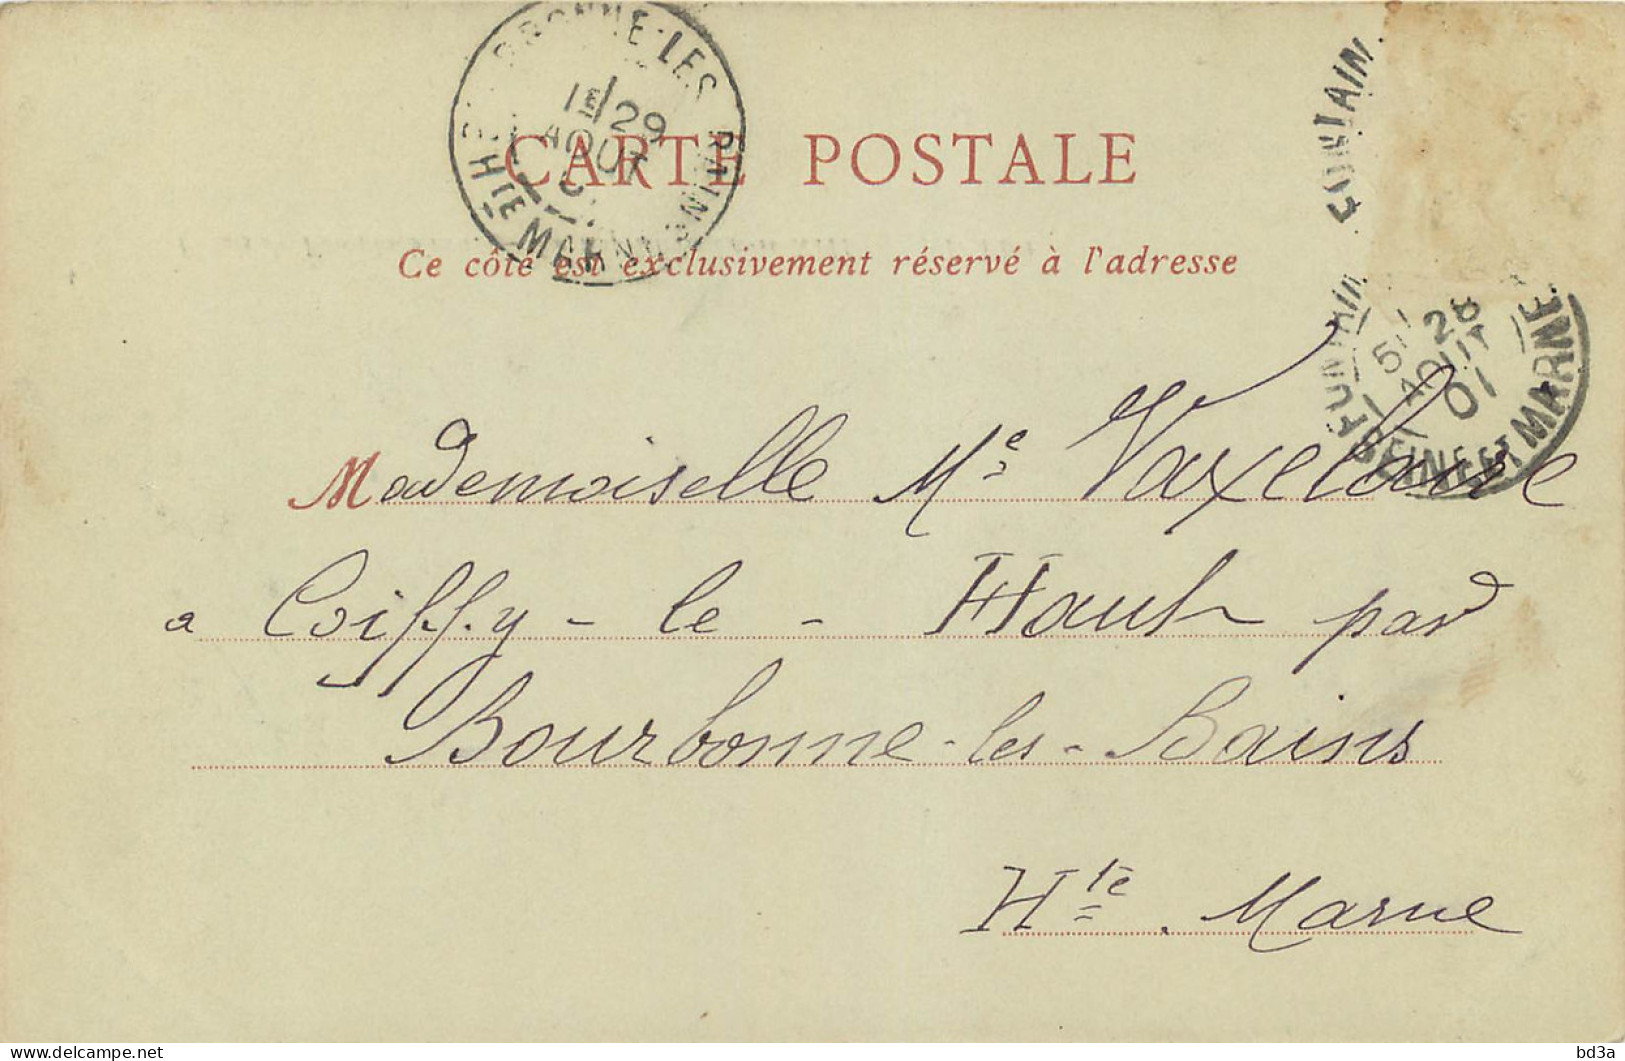 CARTE POSTALE
Ce côté est exclusivement réservé à l'adresse
29
AOUT
Hte MARNE
28
AOUT
01
SEINE ET MARNE
Mademoiselle Me Vaxelaire
a Coiffy-le-Haut par
Bourbonne-les-Bains
Hte. Marne
delcampe.net
bd3a